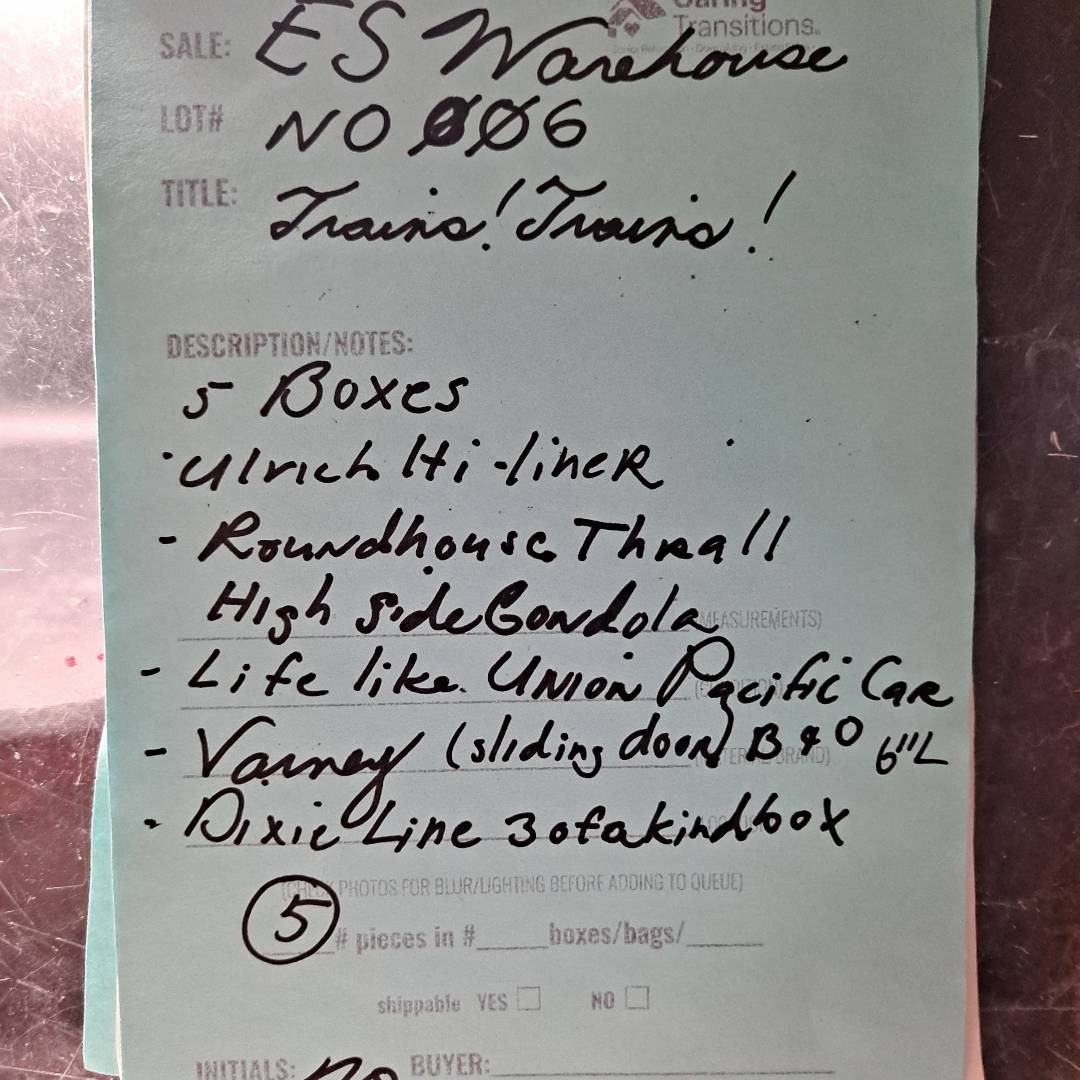 Caring
Transitions.
SALE: ES Warehouse
LOT# NO 006
TITLE: Trains! Trains!
DESCRIPTION/NOTES:
5 Boxes
· Ulrich Hi-lineR
- Roundhouse Thrall
High Side Gondola
MEASUREMENTS)
- Life like Union Pacific Car
- Varney (sliding door) B & O 6"L
- Dixie Line 3 of a kind box
(CHECK PHOTOS FOR BLUR/LIGHTING BEFORE ADDING TO QUEUE)
5 # pieces in #_____boxes/bags/______
shippable YES NO
INITIALS: no BUYER: